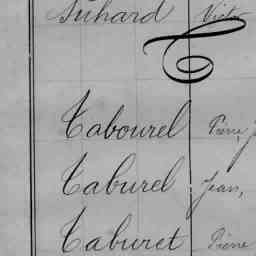 Suhard Victor
T
Tabourel Pierre, J
Taburel Jean,
Taburet Pierre